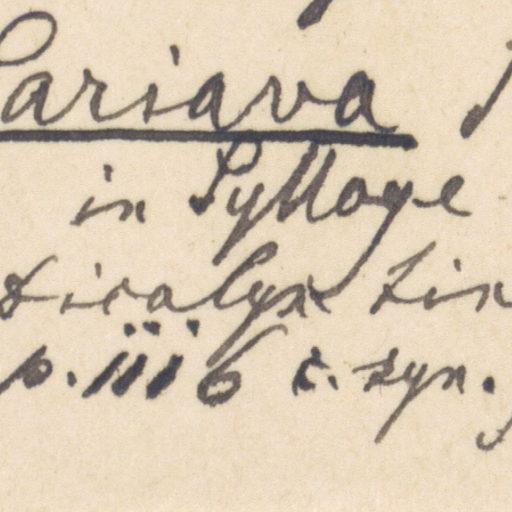 Lariava
in Sylloge
dicalyx Lin
p. 1116 c. syn.